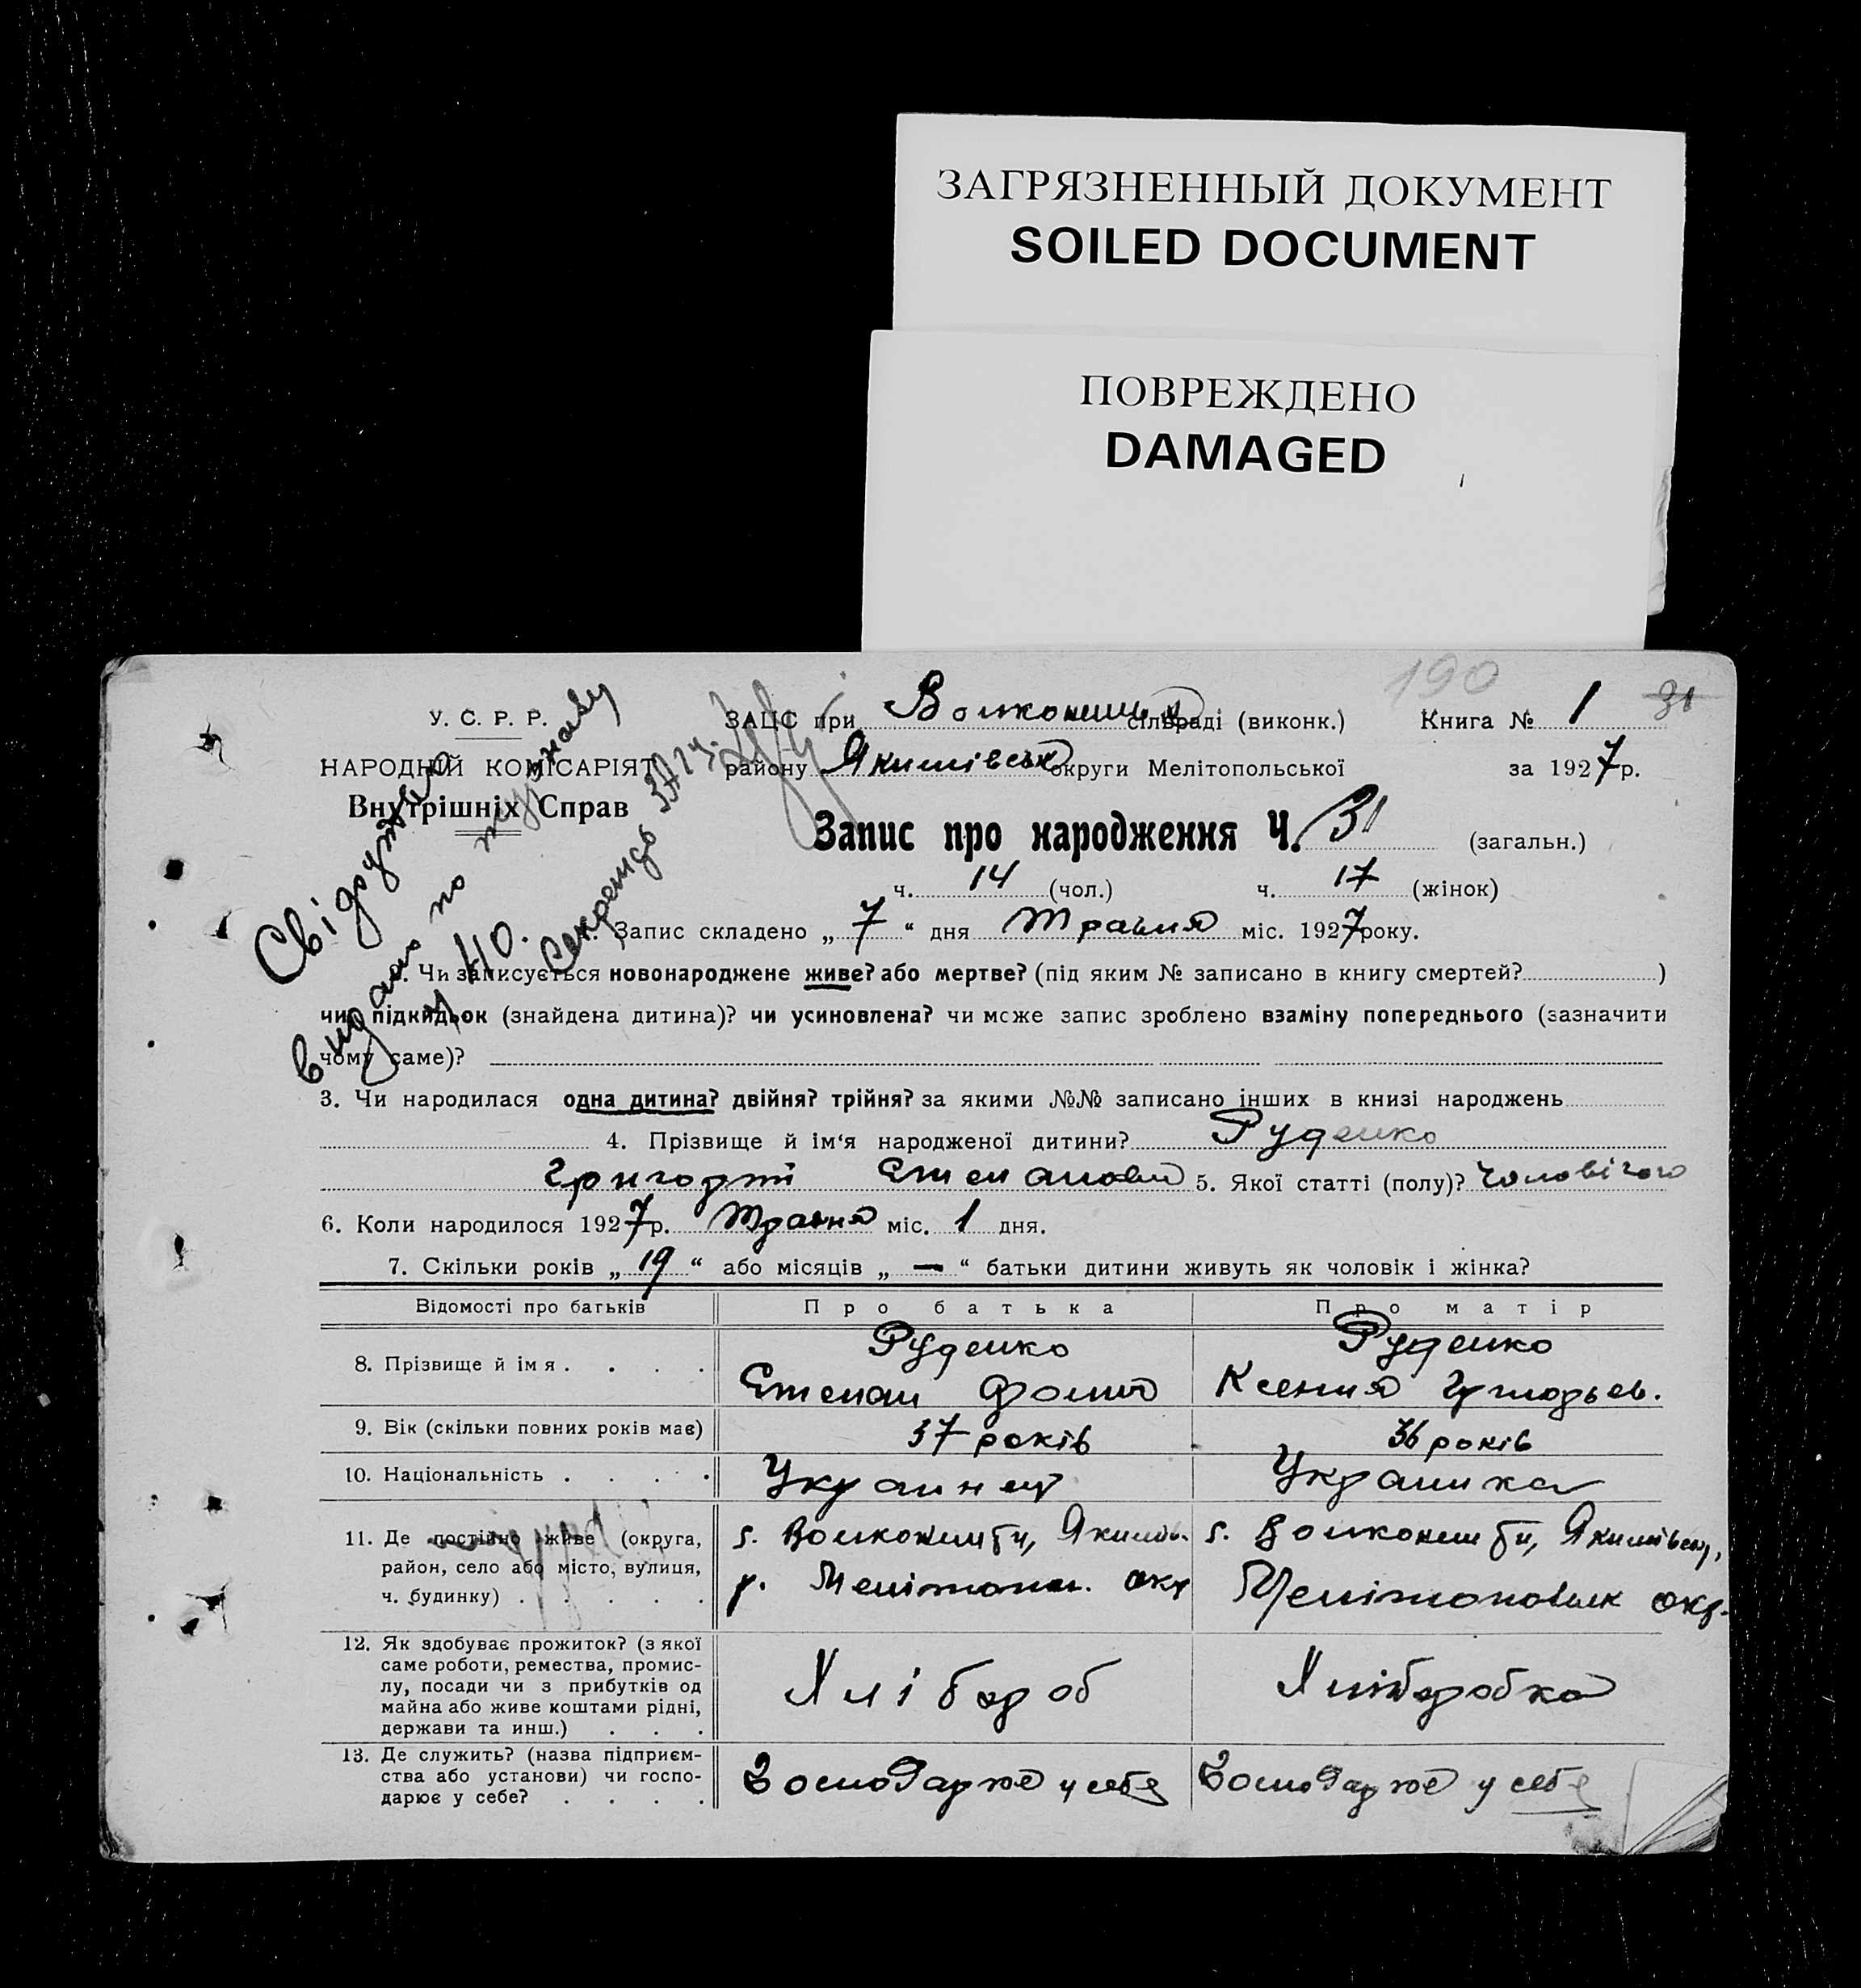 ЗАГРЯЗНЕННЫЙ ДОКУМЕНТ
SOILED DOCUMENT
ПОВРЕЖДЕНО
DAMAGED
190
У. С. Р. Р.
НАРОДНІЙ КОМІСАРІЯТ
Внутрішніх Справ
ЗАЦС при сільраді (виконк.) Книга № 1 31
району Якимівськ округи Мелітопольської за 1927р.
Запис про народження Ч. 31 (загальн.)
ч. 14 (чол.) ч. 17 (жінок)
Запис складено „ 7 “ дня Травня міс. 1927року.
Чи записується новонароджене живе? або мертве? (під яким № записано в книгу смертей? )
чи підкидьок (знайдена дитина)? чи усиновлена? чи може запис зроблено взаміну попереднього (зазначити
чому саме)?
3. Чи народилася одна дитина? двійня? трійня? за якими №№ записано інших в книзі народжень
4. Прізвище й ім‘я народженої дитини? Руденко
5. Якої статті (полу)? Чоловічого
6. Коли народилося 1927р. Травня міс. 1 дня.
7. Скільки років „ 19 “ або місяців „ — “ батьки дитини живуть як чоловік і жінка?
Відомості про батьків Про батька Про матір
8. Прізвище й імя . . . . Руденко Руденко
Степан Фомич Ксения
9. Вік (скільки повних років має) 37 років 36 років
10. Національність . . . . . Украинец Украинка
11. Де постійно живе (округа,
район, село або місто, вулиця,
ч. будинку) . . . . .
12. Як здобуває прожиток? (з якої
саме роботи, ремества, промис-
лу, посади чи з прибутків од
майна або живе коштами рідні,
держави та инш.) . . .
Хлібороб Хліборобка
13. Де служить? (назва підприєм-
ства або установи) чи госпо-
дарює у себе? . . . .
Господарює у себе Господарює у себе